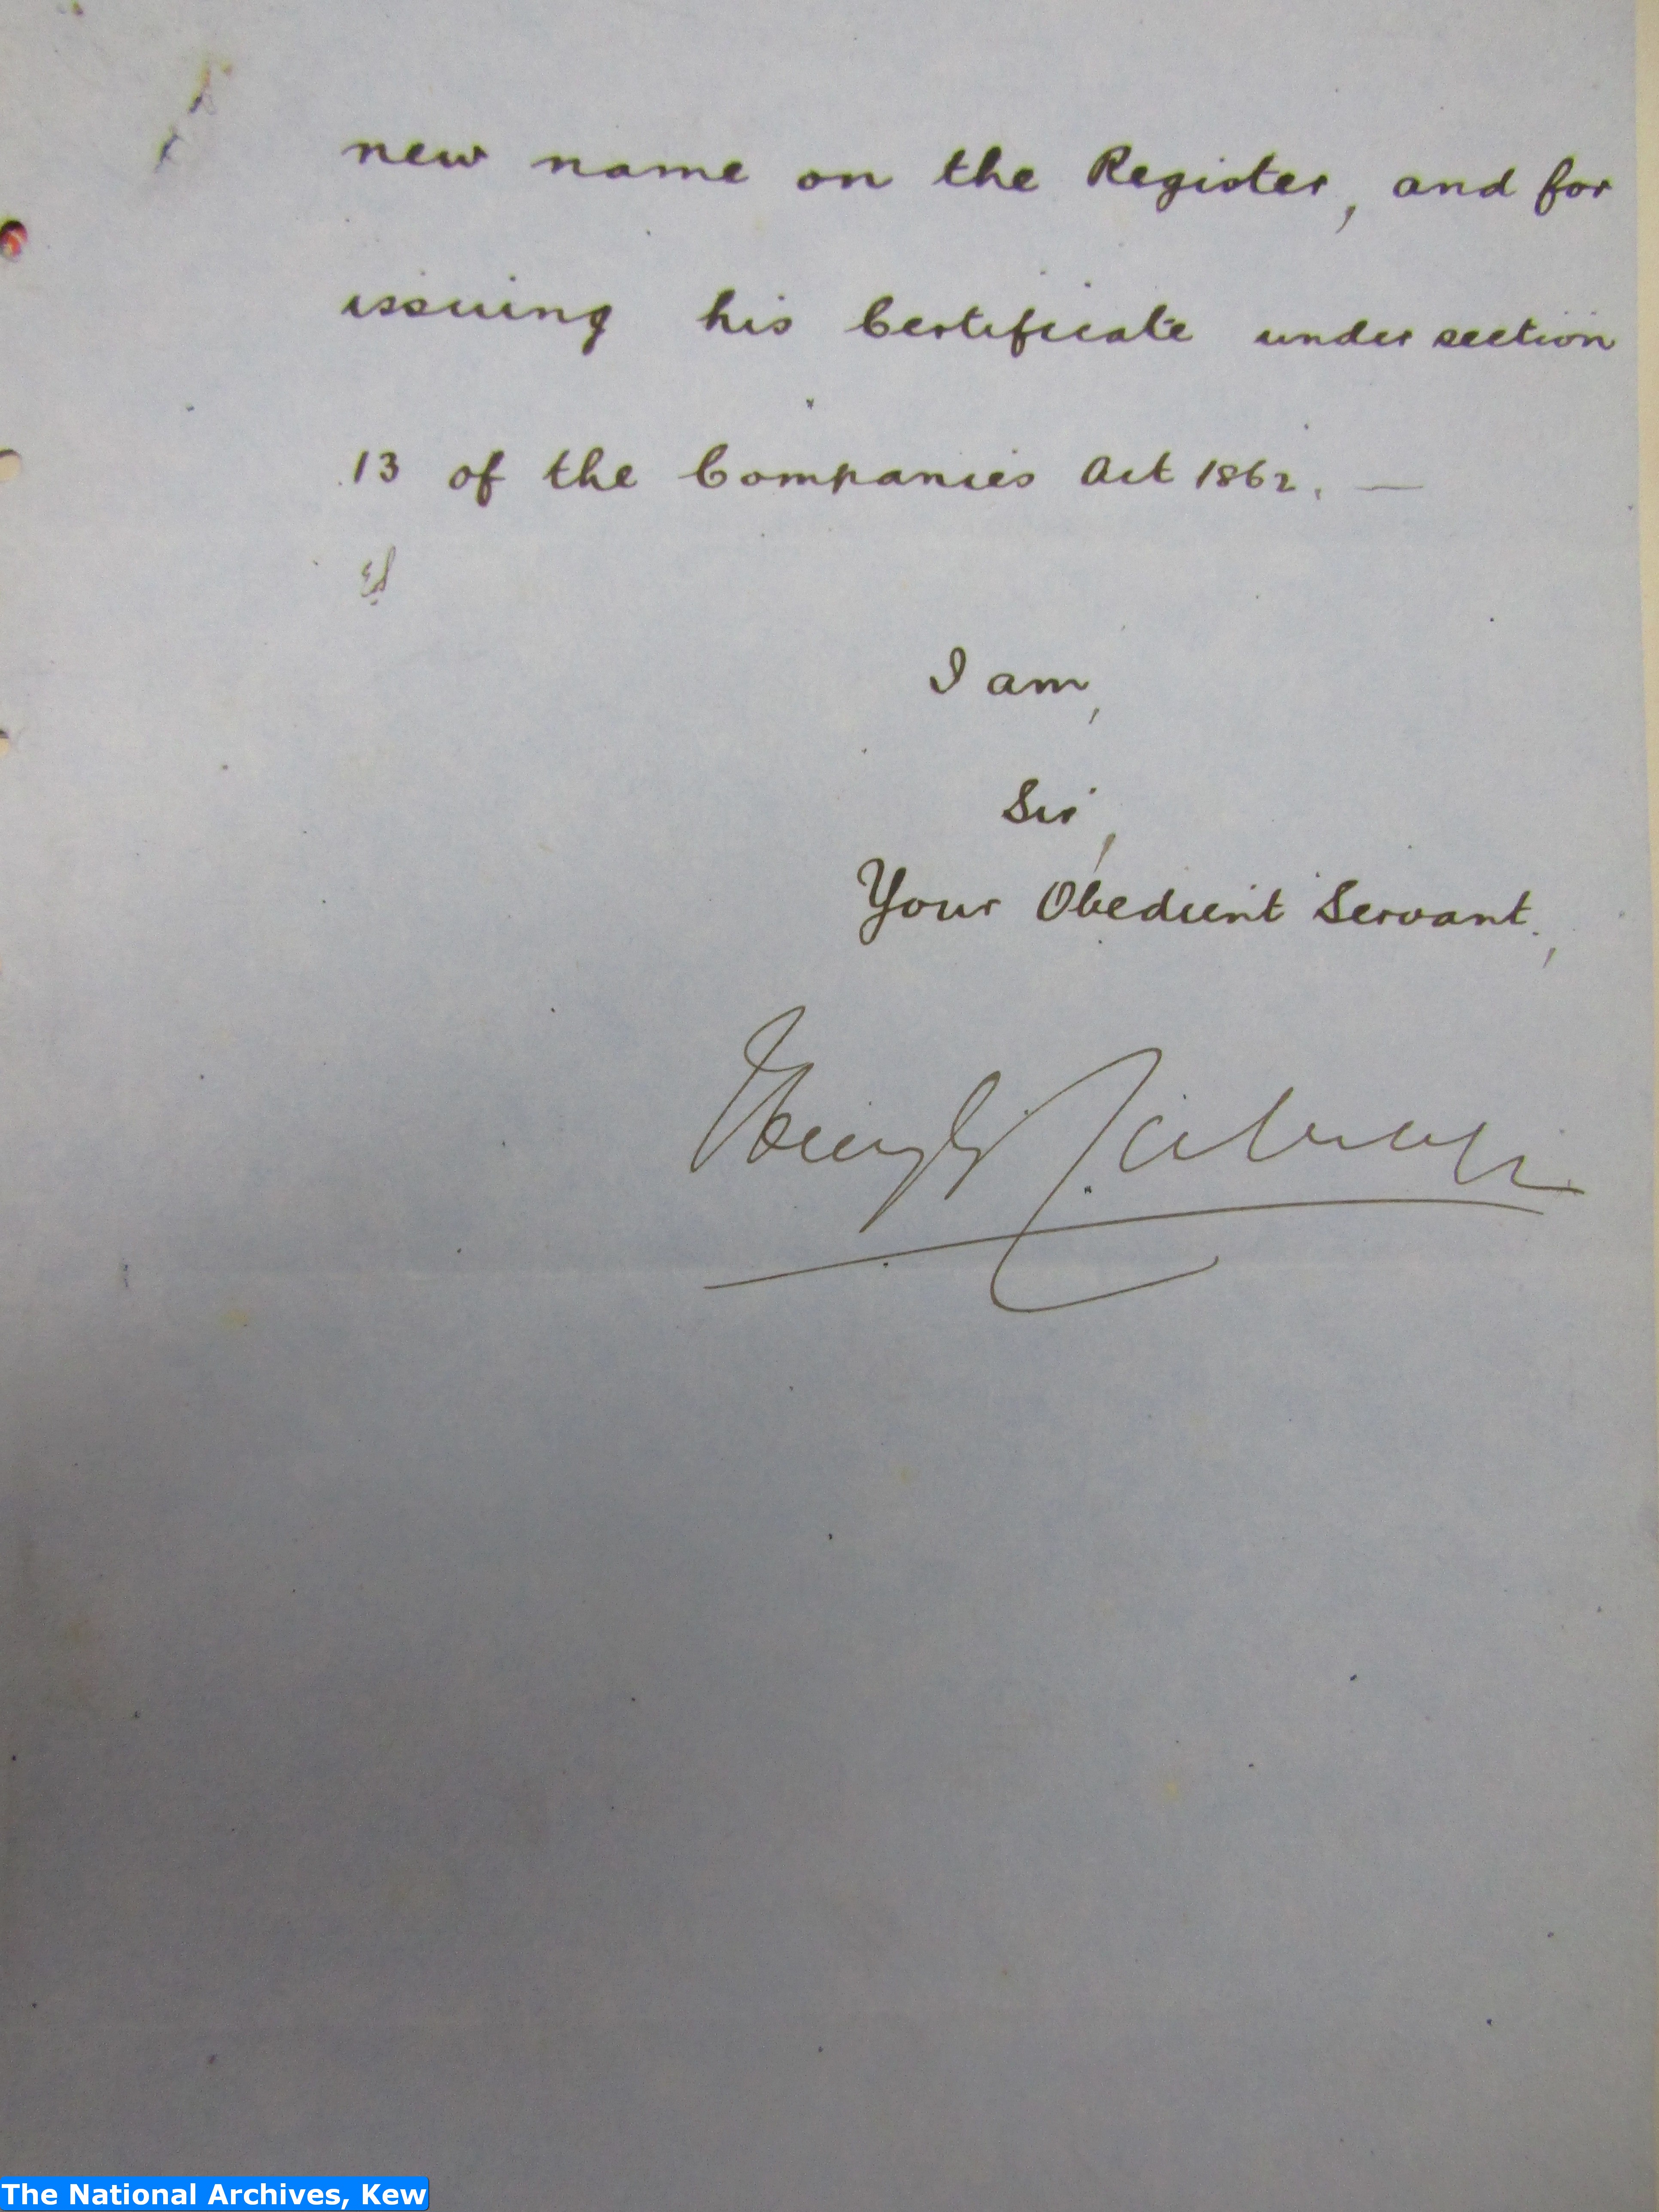 new name on the Register, and for
issuing his Certificate under section
13 of the Companies Act 1862. —
I am,
Sir,
Your Obedient Servant.,
The National Archives, Kew